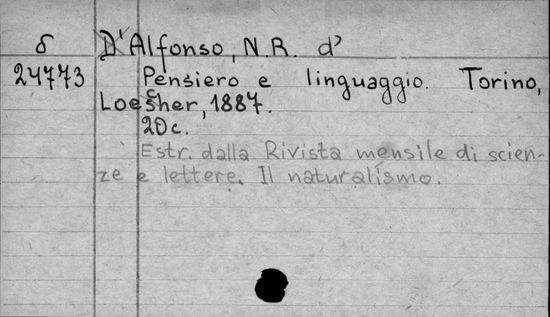 δ D'Alfonso, N.R. d'
24773 Pensiero e linguaggio. Torino,
Loescher, 1887.
20 c.
Estr. dalla Rivista mensile di scien-
ze e lettere. Il naturalismo.